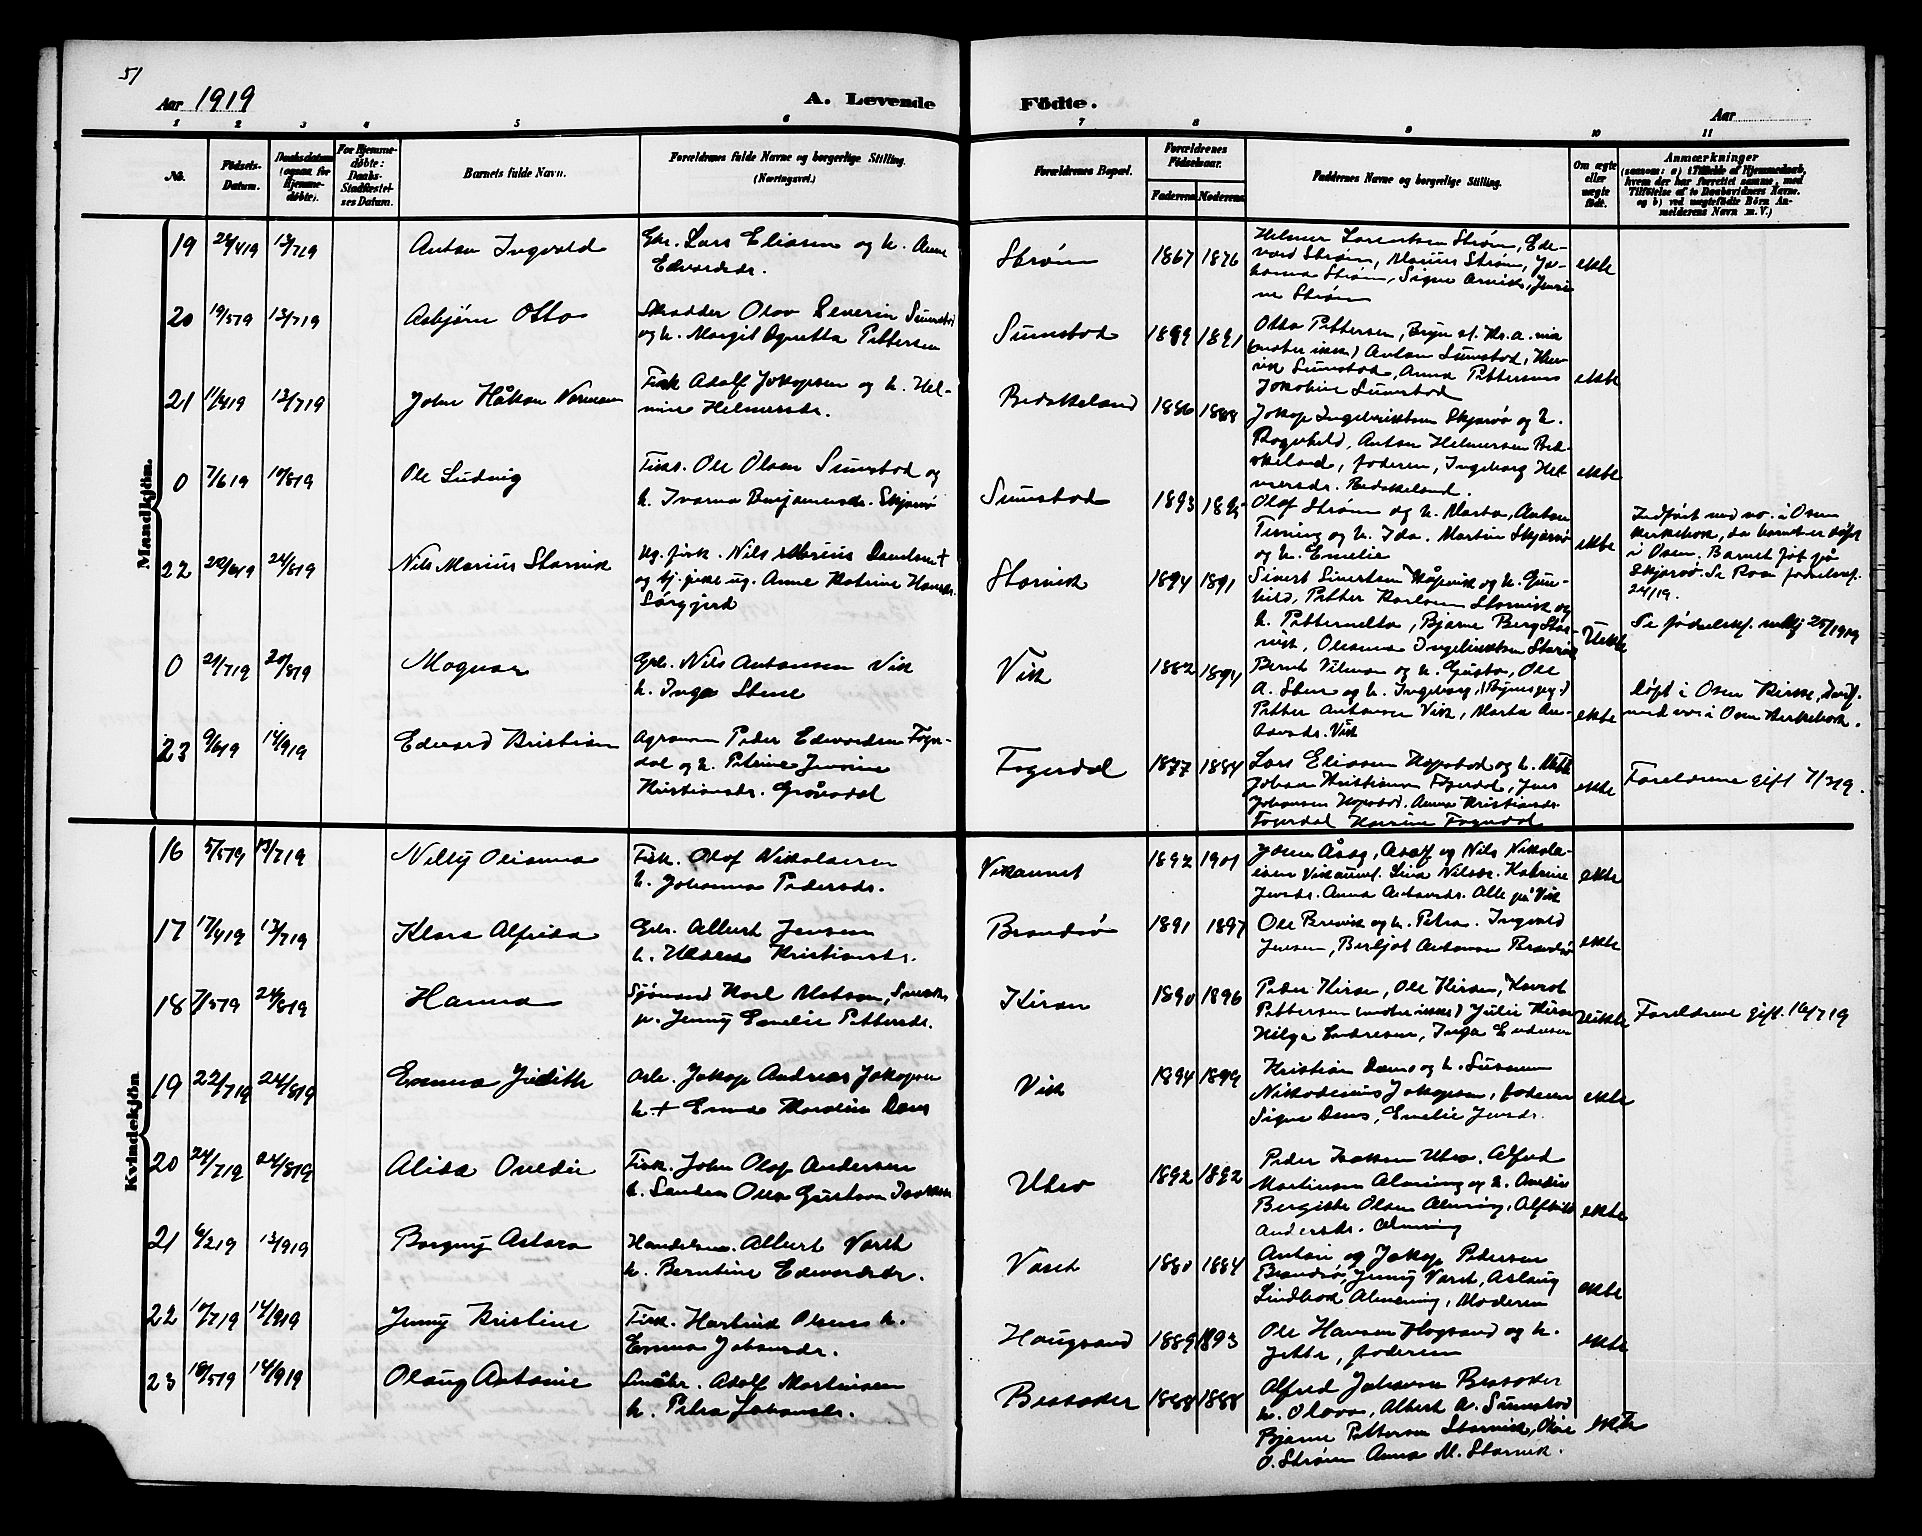 51
Aar 1919
A. Levende Födte.
Aar
1 2 3 4 5 6 7 8 9 10 11
No.
Födsels-
Datum.
Daabsdatum
(ogsaa for
Hjemme-
døbte).
For Hjemme-
døbte:
Daabs-
Stadfæstel-
ses Datum.
Barnets fulde Navn.
Forældrenes fulde Navne og borgerlige Stilling.
(Næringsvei.)
Forældrenes Bopæl.
Forældrenes
Födselsaar.
Faderens Moderens
Faddernes Navne og borgerlige Stilling.
Om ægte
eller
uægte
födt.
Anmærkninger
(saasom: a) i Tilfælde af Hjemmedaab,
hvem der har forrettet samme, med
Tilföielse af to Daabsvidners Navne,
og b) ved uægtefödte Börn An-
melderens Navn m. V.)
Mandkjön.
19 13/719 Anton Ingvald
Gbr. Lars Eliasen og h. Anne
Edvardsdr.
Strøm 1867 1876
Helmer Lorentsen Strøm, Ed-
vard Strøm, Marius Strøm, Jo-
hanna Strøm, Signe Arnvik, Jensi-
ne Strøm
ekte
20 19/519 13/719 Asbjørn Otto
Skrædder Olav Severin Sumstad
og h. Margit Agnetta Pettersen
Sumstad 1889 1891
Otto Pettersen, Anton Sumstad, Hen-
rik Sumstad, Anna Pettersen
Jakobine Sumstad
ekte
21 11/419 13/719 John Håkon Norman
Fisk Adolf Jakopsen og h. Hel-
mine Helmersdr.
Beskeland 1886 1888
Jakop Ingebriktsen Skjærvø og h.
Ragnhild, Anton Helmersen Bes-
keland, faderen, Ingeborg Hel-
mersdr. Beskeland.
ekte
0 7/619 10/819 Ole Ludvig
Fisk. Ole Olsen Sumstad og
h. Ivarna Benjaminsdr. Skjærvø
Sumstad 1893 1895
Olaf Strøm og h. Marta, Anton
Tinning og h. Ida, Martin Skjærvø
og h. Emelie
ekte
Indført med no. i Osen
kirkebok, da barnet er døpt
i Osen. Barnet føt på
Skjærvø. Se Roan fødselsf.
24/19.
22 24/819 Nils Marius Storvik
Ug. fisk. Nils Marius Danielsen +
og tj. pike ug. Anne Katrine Hansdr.
Sørgjerd
Storvik 1894 1891
Sivert Sivertsen Håpvik og h. Gun-
hild, Petter Karlsen Storvik og
h. Petternelta, Bjarne Berg Stor-
vik, Oleanna Ingebriktsen Storvik
Uekte
Se fødselsf. 25/1919
0 21/719 20/819 Magnar
Gbr. Nils Antonsen Vik
h. Inga Stene
Vik 1882 1894
Bernt Vilman og h. Gusta, Ole
A. Stene og h. Ingeborg,
Petter Antonsen Vik, Marta An-
tonsdr. Vik
ekte
Døpt i Osen Kirke, Indf.
med no i Osen Kirkebok.
23 9/619 14/919 Edvard Kristian
Agronom Peder Edvardsen Fager-
dal og h. Petrine Jensine
Kristiansdr. Grønndal
Fagerdal 1877 1884
Lars Eliasen Hopstad og h. Mette
Johan Kristiansen Fagerdal, Jens
Johansen Hopstad. Anna Kristiansdr.
Fagerdal Karine Fagerdal
ekte
Foreldrene gift 7/319.
Kvindekjön
16 5/519 13/719 Nelly Olianna
Fisk. Olaf Nikolaisen
h. Johanna Pedersdr.
Vikaunet 1892 1901
Johan Åsøg, Adolf og Nils Nikola-
isen Vikaunet. Lina Nilsdr. Katrine
Jensdr. Anna Antonsdr. Alle på Vik
ekte
17 17/419 13/719 Klara Alfrida
Gbr. Albert Jensen
h. Kristiansdr.
Brandsø 1891 1897
Ole Brevik og h. Petra. Ingvald
Jensen, Bergljot Antonsen Brandsø
ekte
18 7/519 24/819 Hanna
Sjømand Karl Matson,
p. Jenny Emelie Pettersdr.
Kiran 1890 1896
Peder Kiran, Ole Kiran, Harald
Pettersen Julie Kiran
Helga Endresen, Inga Endresen
Uekte
Foreldrene gift. 16/719
19 22/719 24/819 Emma Judith
Arb. Jakop Andreas Jakopsen
h. + Emma Karoline Dans
Vik 1894 1899
Kristian Dans og h. Susanna
Nikodemus Jakopsen, faderen
Signe Dans, Emelie Jensdr.
ekte
20 24/719 24/819 Alida Ovedie
Fisk. John Olaf Andersen
h. Sandra Olea Gustava Isaksen
Utro 1892 1892
Peder Isaksen Utro. Alfred
Martinsen Almening og h. Ovedie
Bergitte Olsen Almening, Alfhild
Andersdr. Almening
ekte
21 6/219 13/919 Borgny Astora
Handelsm. Albert Vaset
h. Berntine Edvardsdr.
Vaset 1880 1884
Anton og Jakop Pedersen
Brandsø, Jenny Vaset, Aslaug
Lindstad Almening, Moderen
ekte
22 10/719 14/919 Jenny Kristine
Fisk. Hartvik Olsen h.
Emma Johansdr.
Haugsand 1889 1893
Ole Hansen Hogsand og h.
Jette, faderen
ekte
23 18/519 14/919 Olaug Antonie
Småbr. Adolf Martinsen
h. Petra Johansdr.
Bessaker 1888 1888
Alfred Johansen Bessaker
h. Olava, Albert A. Sumstad
Bjarne Pettersen Storvik,
O. Strøm Anna M. Storvik.
ekte